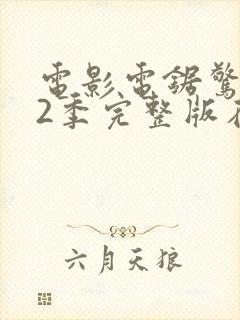 電影電鋸驚
2季完整版在
六月天狼